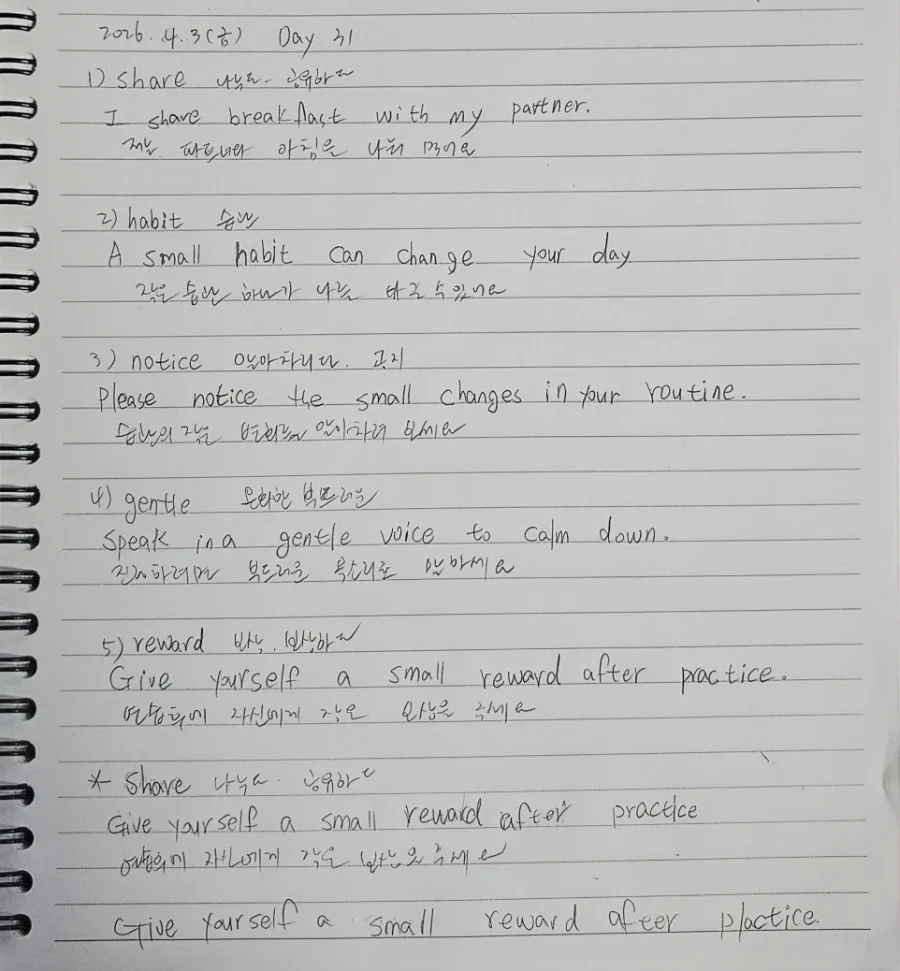 2026.4.3(금) Day 31
1) share 나누다. 공유하다
I share breakfast with my partner.
저는 파트너와 아침을 나눠 먹어요
2) habit 습관
A small habit can change your day
작은 습관 하나가 바꿀 수 있어요
3) notice 알아차리다. 공지
Please notice the small changes in your routine.
습관의 작은 변화를 알아차려 보세요
4) gentle 온화한 부드러운
Speak in a gentle voice to calm down.
진정하려면 부드러운 목소리로 말하세요
5) reward 보상. 보상하다
Give yourself a small reward after practice.
연습후에 자신에게 작은 보상을 주세요
* Share 나누다. 공유하다
Give yourself a small reward after practice
연습후에 자신에게 작은 보상을 주세요
Give yourself a small reward after plactice.